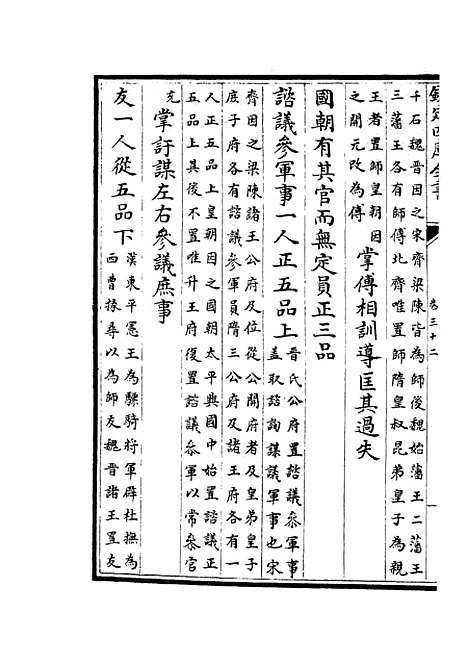 欽定四庫全書
卷三十二
千石魏晉因之宋齊梁陳皆為師後魏始藩王二藩王
三藩王各有師傅北齊唯置師隋皇叔昆弟皇子為親
王者置師皇朝因
之開元改為傅
掌傅相訓導匡其過失
國朝有其官而無定員正三品
諮議參軍事一人正五品上
晉氏公府置諮議叅軍事
盖取諮詢謀議軍事也宋
齊因之梁陳諸王公府及位從公開府者及皇弟皇子
庶子府各有諮議參軍員隋三公府及諸王府各有一
人正五品上皇朝因之國朝太平興國中始置諮議正
五品上其後不置唯升王府復置諮議叅軍以常叅官
充
掌訏謀左右參議庶事
友一人從五品下
漢東平憲王為驃騎将軍辟杜撫為
西曹掾尋以為師友魏晉諸王置友